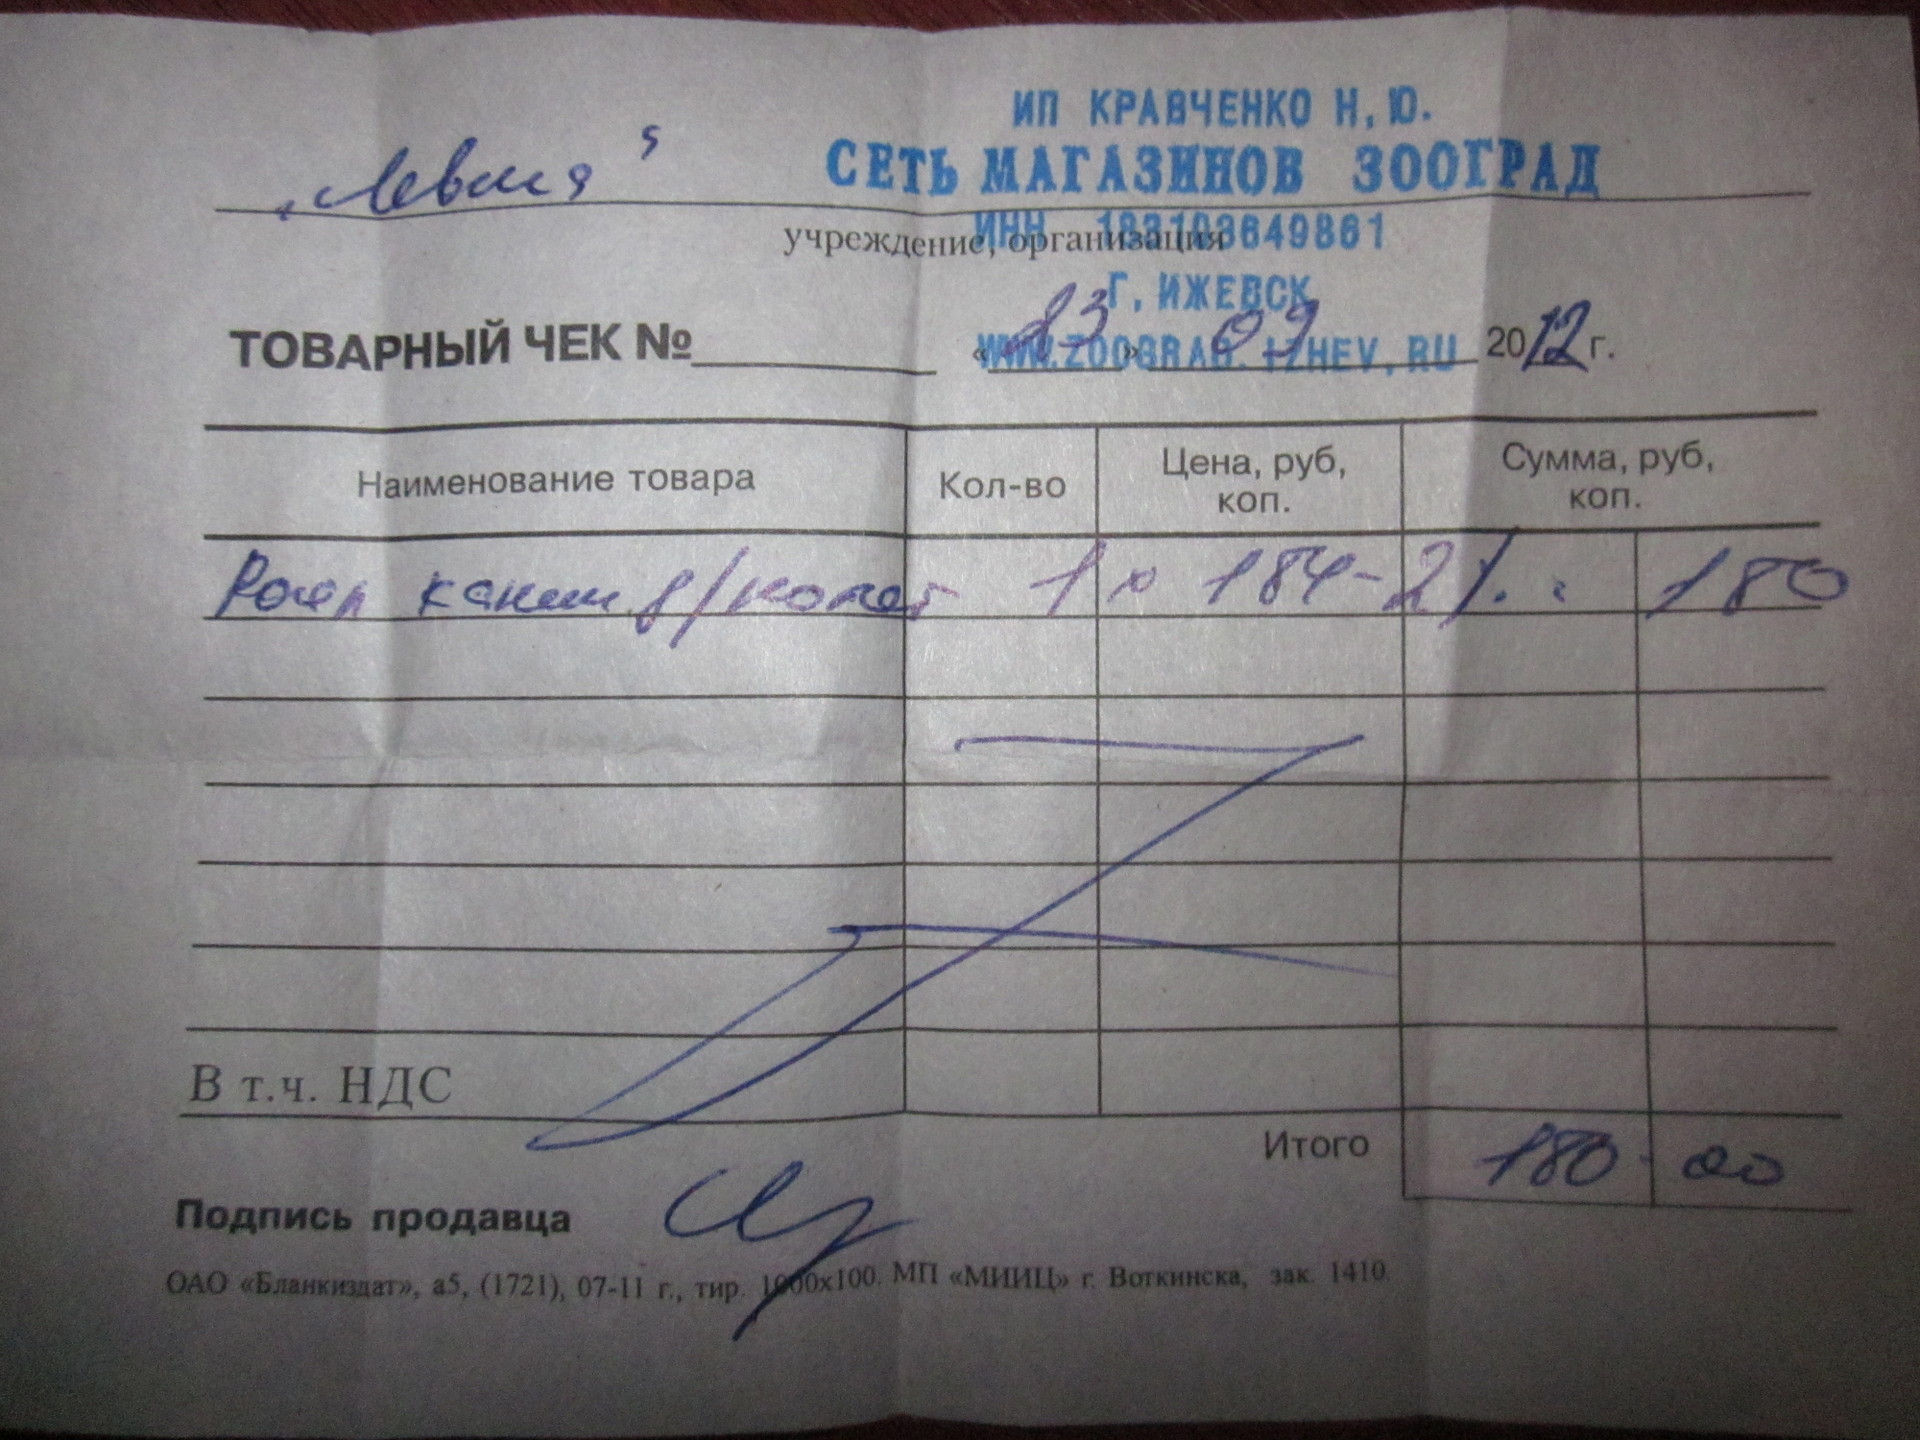 ИП КРАВЧЕНКО Н.Ю.
СЕТЬ МАГАЗИНОВ ЗООГРАД
учреждение, организация
ИНН 183103649861
Г. ИЖЕВСК
ТОВАРНЫЙ ЧЕК № « 23 » 09 2012 г.
WWW.ZOOGRAD.IZHEV.RU
Наименование товара Кол-во Цена, руб, коп. Сумма, руб, коп.
канин д/котят 1 x 184-2% = 180
В т.ч. НДС
Итого 180-00
Подпись продавца
ОАО «Бланкиздат», а5, (1721), 07-11 г., тир. 1000х100. МП «МИИЦ» г. Воткинска, зак. 1410.